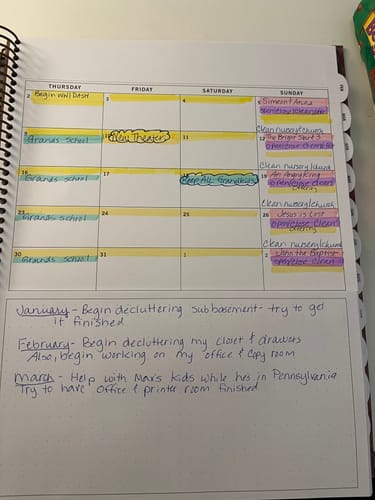 THURSDAY FRIDAY SATURDAY SUNDAY
2 Begin WW/DASH 3 4 5
Simeon & Anna
open/close/clean
9 10 11 12
Clean nursery/church
Grands school New Theater The Bright Star
open/close clean
16 17 18 19
Clean nursery/church
Grands school Keep ALL Grandkids An Angry King
open/close clean
offering
23 24 25 26
Clean nursery/church
Grands school Jesus is Lost
open/close clean
offering
30 31 1 2
Clean nursery/church
Grands school John the Baptist
open/close clean
January - Begin decluttering subbasement - try to get
it finished
February - Begin decluttering my closet & drawers
Also, begin working on my office & copy room
March - Help with Max's kids while he's in Pennsylvania
Try to have office & printer room finished